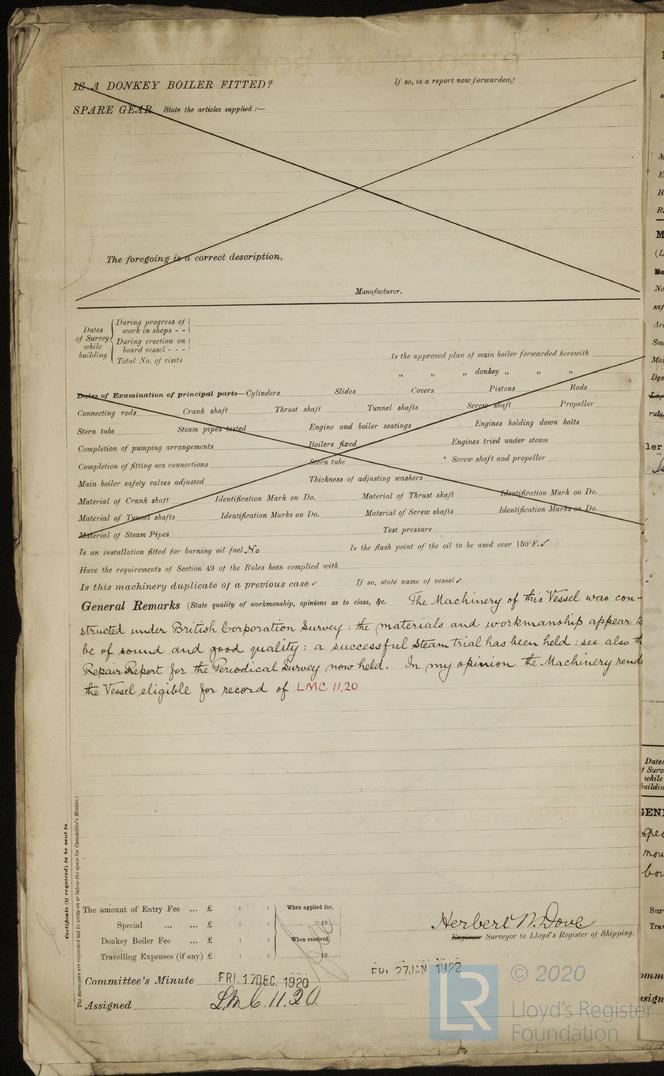 IS A DONKEY BOILER FITTED? If so, is a report now forwarded?
SPARE GEAR State the articles supplied :—
The foregoing is a correct description,
Manufacturer.
Dates of Survey while building
During progress of work in shops - -
During erection on board vessel - - -
Total No. of visits
Is the approved plan of main boiler forwarded herewith
" " " donkey " " "
Dates of Examination of principal parts—Cylinders Slides Covers Pistons Rods
Connecting rods Crank shaft Thrust shaft Tunnel shafts Screw shaft Propeller
Stern tube Steam pipes tested Engine and boiler seatings Engines holding down bolts
Completion of pumping arrangements Boilers fixed Engines tried under steam
Completion of fitting sea connections Stern tube Screw shaft and propeller
Main boiler safety valves adjusted Thickness of adjusting washers
Material of Crank shaft Identification Mark on Do. Material of Thrust shaft Identification Mark on Do.
Material of Tunnel shafts Identification Marks on Do. Material of Screw shafts Identification Marks on Do.
Material of Steam Pipes Test pressure
Is an installation fitted for burning oil fuel No Is the flash point of the oil to be used over 150°F. ✓
Have the requirements of Section 49 of the Rules been complied with
Is this machinery duplicate of a previous case ✓ If so, state name of vessel ✓
General Remarks (State quality of workmanship, opinions as to class, &c. The Machinery of this Vessel was con-
structed under British Corporation Survey : the materials and workmanship appear
be of sound and good quality : a successful Steam trial has been held : see also
Repair Report for the Periodical Survey now held. In my opinion the Machinery
the Vessel eligible for record of LMC 11.20
Certificate (if required) to be sent to
The Surveyors are requested not to write on or below the space for Committee's Minute.
The amount of Entry Fee ... £ : : When applied for,
Special ... ... £ : : 19
Donkey Boiler Fee ... £ : : When received,
Travelling Expenses (if any) £ : : 19
Herbert W. Dove
Engineer Surveyor to Lloyd's Register of Shipping.
Committee's Minute FRI. 17 DEC. 1920 FRI. 27 JAN 1922
Assigned LMC 11.20
LR © 2020
Lloyd's Register
Foundation